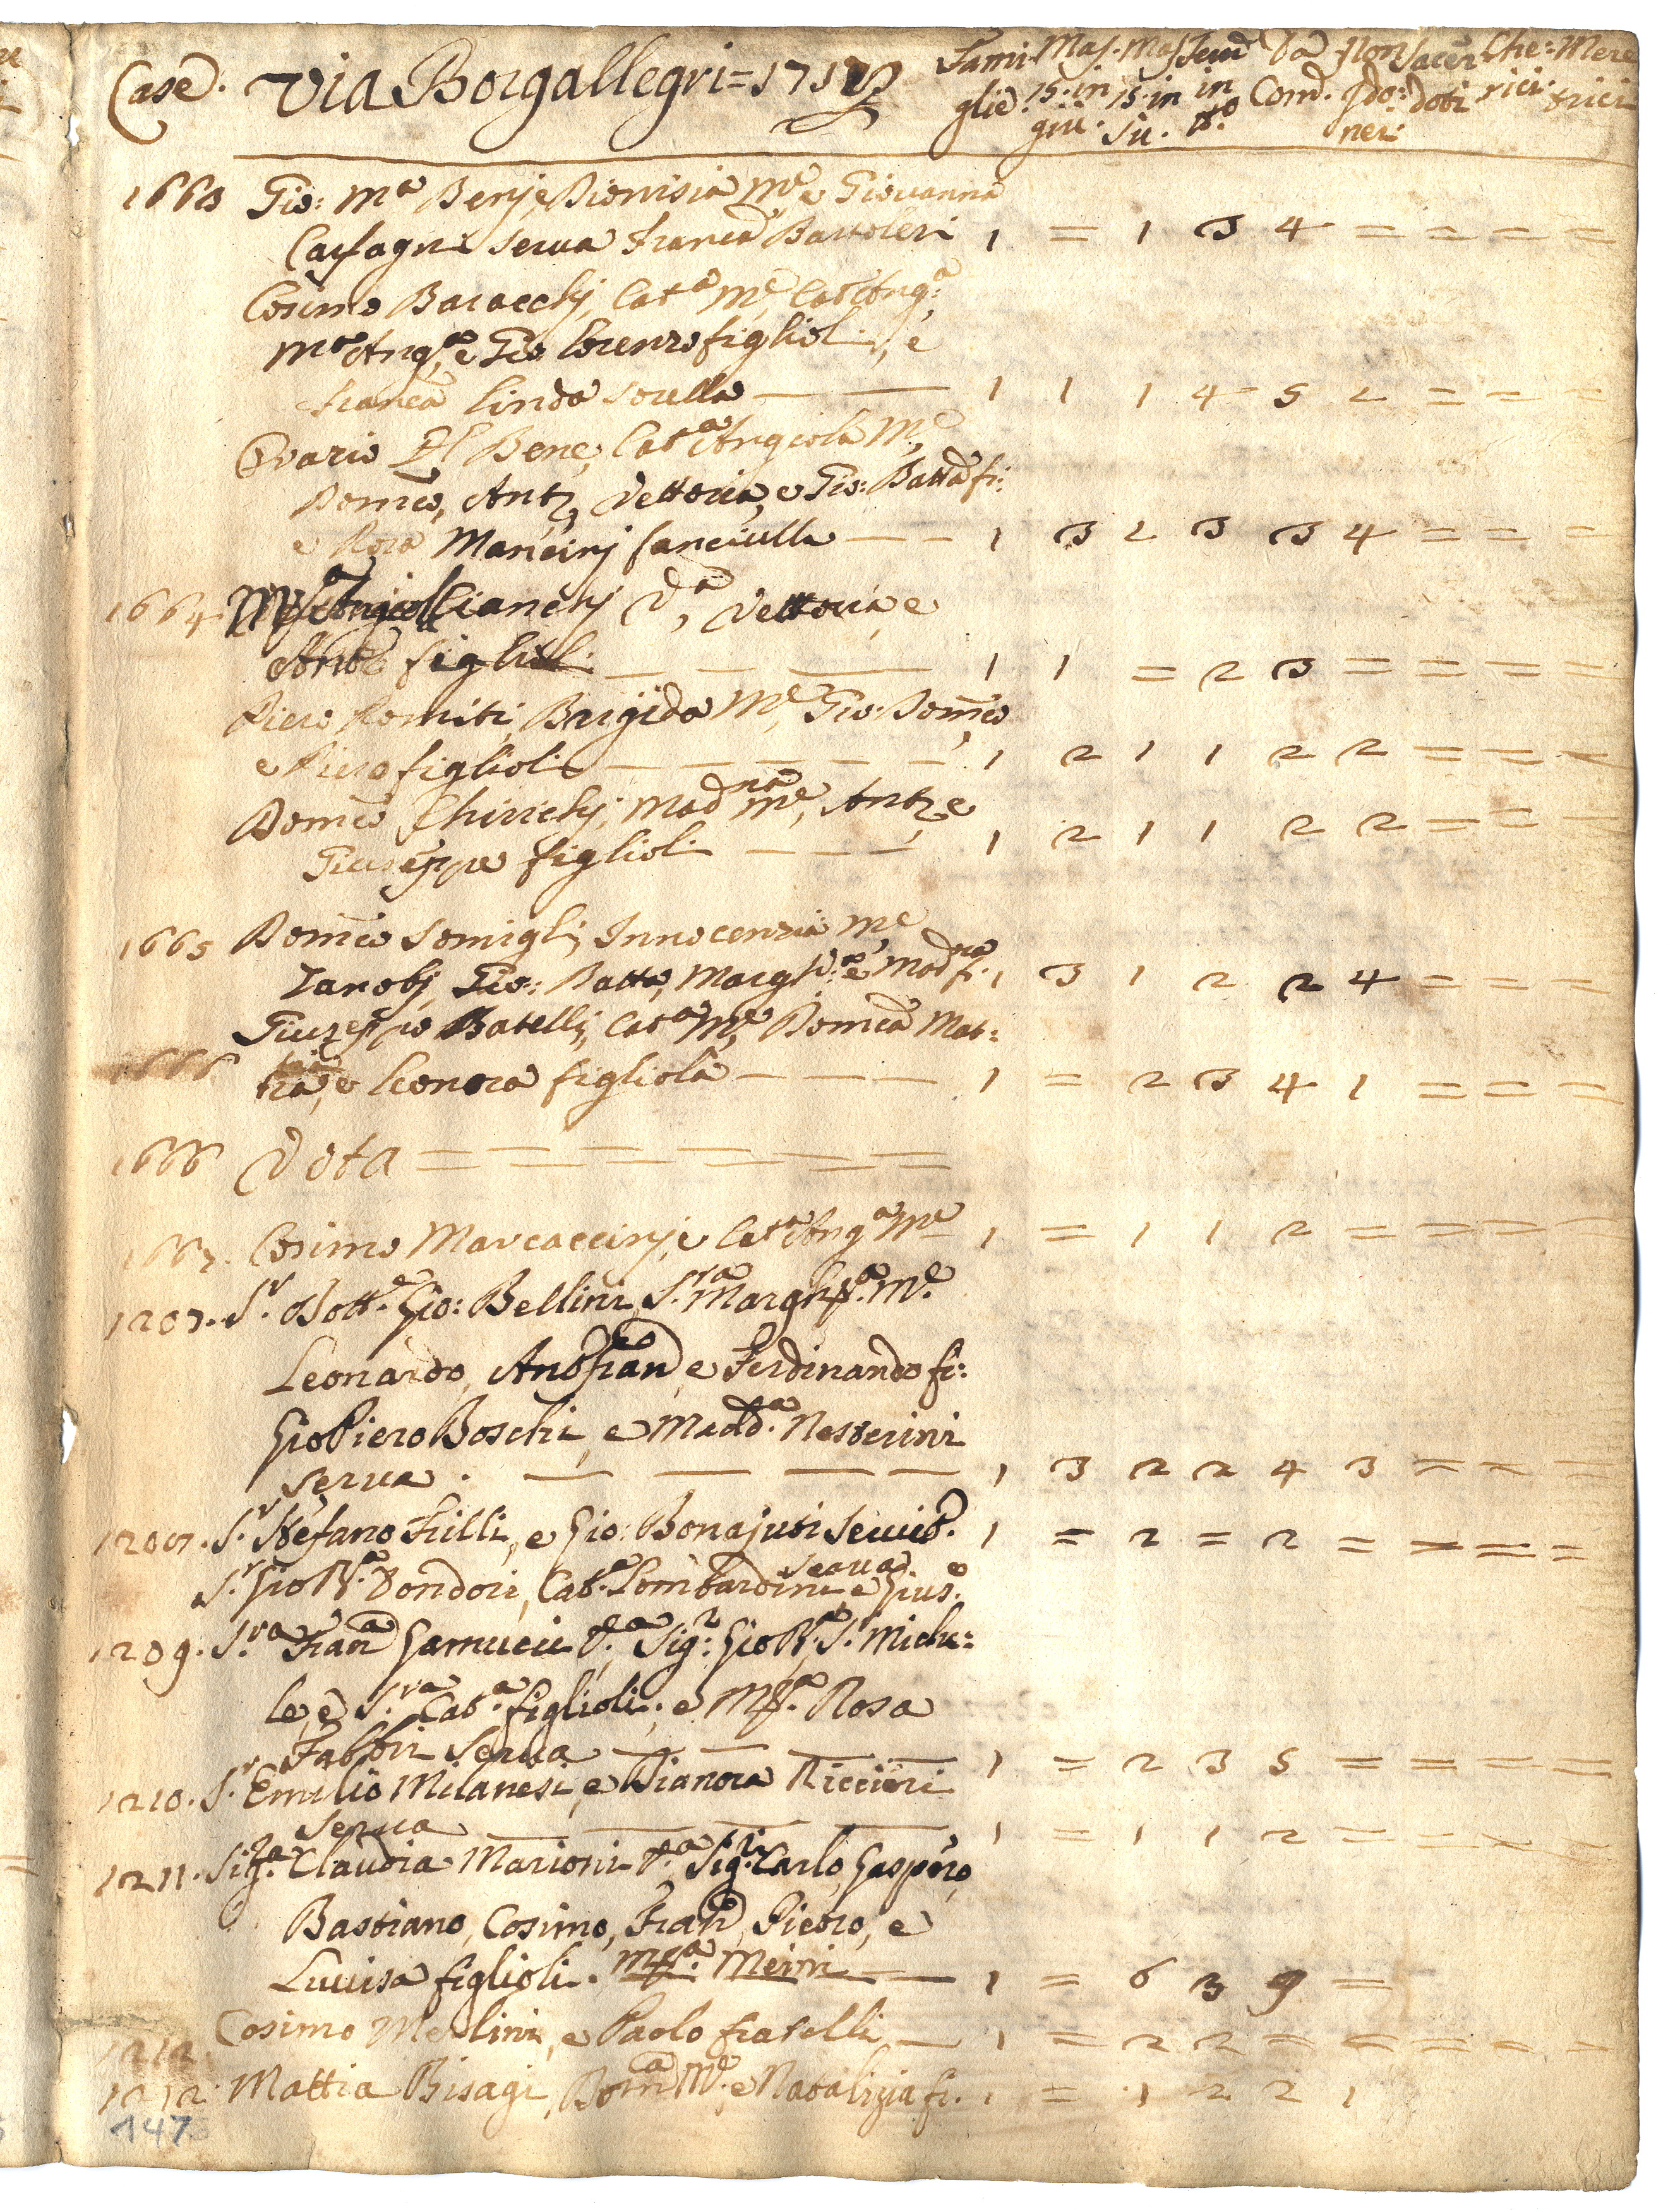 Case. Via Borgallegri = 1717 Fami: Mas. Mas. Fem Da Non Sacer Che: Mere
glie. 15. in 15. in in Com. Ido: doti rici. trici
giù. Sù. tto ner:
1663 Gio: Ma Benj e Dionisia Me e Giovanna
Casfagni serva Franca Bartoleri 1 = 1 3 4 = = = =
Cosimo Baracchj, Cata Me, Cata Anga
Mo Anga, e Gio: Lorenzo figlioli, e
Franca Linda sorella — — 1 1 1 4 5 2 = = =
Ovario Del Bene, Cata Angiola Me
Domco, Anto, Vettoria, e Gio: Batta fi:
e Rosa Mancinj fanciulla — — 1 3 2 3 3 4 = = =
1664 Bianchj Va, Vettoria, e
Anto figlioli — — — 1 1 = 2 3 = = = =
Piero Romiti, Brigida Me, Gio: Domco
e Piero figlioli — — — — — 1 2 1 1 2 2 = = =
Domco Chirichj, Madna Me, Anto e
Giuseppe figlioli — — — 1 2 1 1 2 2 = = =
1665 Domco Somigli, Innocenzia Me
Zanobj, Gio: Batta, Margha e Madna fi. 1 3 1 2 2 4 = = =
Giuzeppe Batelli, Cata Me, Domca Mat:
1666 tia, e Leonora figliola — — — 1 = 2 3 4 1 = = =
1666 Vota = = = = = =
1667. Cosimo Marcaccinj, e Cata Anga Me 1 = 1 1 2 = = = =
1207. Sr. Dotte. Gio: Bellini, S.ra Margha. Me.
Leonardo, Anto Franco e Ferdinando fi:
Gio Piero Boschi, e Madda. Nesterini
serva. — — — — 1 3 2 2 4 3 = = =
1208. S.r Stefano Frilli, e Gio: Bonajuti Servit.e 1 = 2 = 2 = = = =
S.r Gio Ba. Dondori, Cata. Lombardini serva e Gius.e
1209. S.ra Franca Gamucci V.a Sig.r Gio Ba, S.r Miche:
le, e S.ra Cata. figlioli; e Ma. Rosa
Fabbri serva — — — — 1 = 2 3 5 = = = =
1210. S.r Emilio Milanesi, e Dianora Riccieri
serva — — — — 1 = 1 1 2 = = = =
1211. Sig.ra Claudia Marioni V.a Sig.ri Carlo, Gaspero,
Bastiano, Cosimo, Franco, Pietro, e
Luuisa figlioli. Ma. Meini — — 1 = 6 3 9 =
1212. Cosimo Merlini, e Paolo fratelli — 1 = 2 2 = = = = =
1212. Mattia Bisagi, Domca Me. e Natalizia fi. 1 = 1 2 2 1
147